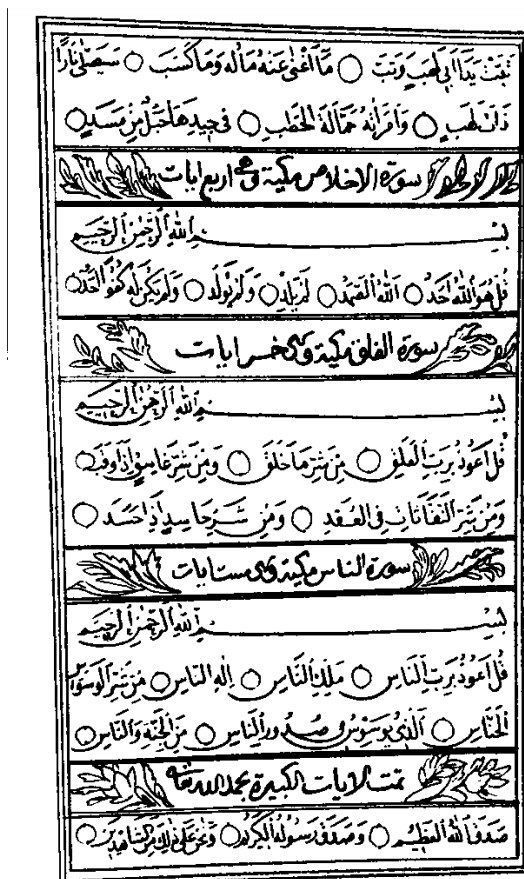 تَبَّتْ يَدَا أَبِي لَهَبٍ وَتَبَّ ○ مَا أَغْنَىٰ عَنْهُ مَالُهُ وَمَا كَسَبَ ○ سَيَصْلَىٰ نَارًا
ذَاتَ لَهَبٍ ○ وَامْرَأَتُهُ حَمَّالَةَ الْحَطَبِ ○ فِي جِيدِهَا حَبْلٌ مِنْ مَسَدٍ ○
سورة الاخلاص مكية وهي اربع ايات
بِسْمِ اللَّهِ الرَّحْمَٰنِ الرَّحِيمِ
قُلْ هُوَ اللَّهُ أَحَدٌ ○ اللَّهُ الصَّمَدُ ○ لَمْ يَلِدْ ○ وَلَمْ يُولَدْ ○ وَلَمْ يَكُنْ لَهُ كُفُوًا أَحَدٌ ○
سورة الفلق مكية وهي خمس ايات
بِسْمِ اللَّهِ الرَّحْمَٰنِ الرَّحِيمِ
قُلْ أَعُوذُ بِرَبِّ الْفَلَقِ ○ مِنْ شَرِّ مَا خَلَقَ ○ وَمِنْ شَرِّ غَاسِقٍ إِذَا وَقَبَ ○
وَمِنْ شَرِّ النَّفَّاثَاتِ فِي الْعُقَدِ ○ وَمِنْ شَرِّ حَاسِدٍ إِذَا حَسَدَ ○
سورة الناس مكية وهي ست ايات
بِسْمِ اللَّهِ الرَّحْمَٰنِ الرَّحِيمِ
قُلْ أَعُوذُ بِرَبِّ النَّاسِ ○ مَلِكِ النَّاسِ ○ إِلَٰهِ النَّاسِ ○ مِنْ شَرِّ الْوَسْوَاسِ
الْخَنَّاسِ ○ الَّذِي يُوَسْوِسُ فِي صُدُورِ النَّاسِ ○ مِنَ الْجِنَّةِ وَالنَّاسِ ○
تمت الايات الكبيرة بحمد الله
صَدَقَ اللَّهُ الْعَظِيمُ ○ وَصَدَقَ رَسُولُهُ الْكَرِيمُ ○ وَنَحْنُ عَلَىٰ ذَٰلِكَ مِنَ الشَّاهِدِينَ ○